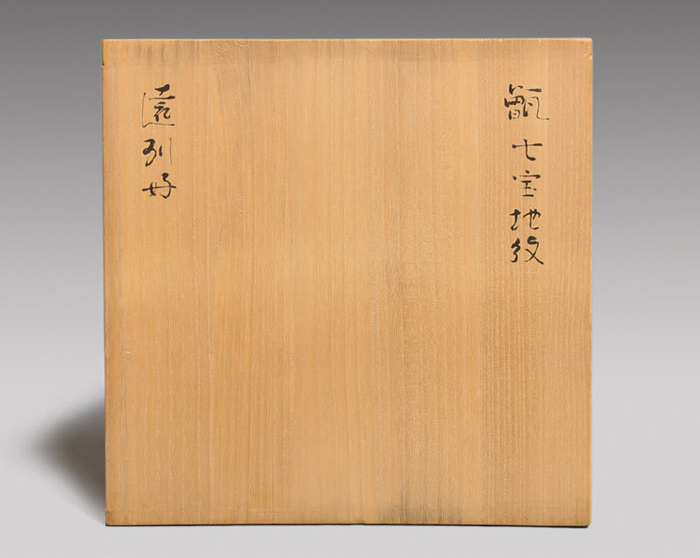 甑七宝地紋
遠州好